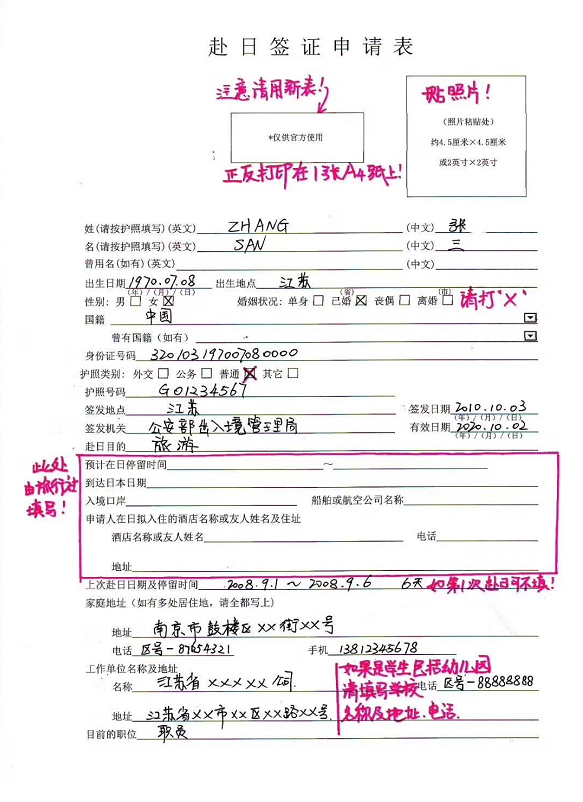 赴日签证申请表
注意请用新表!
贴照片!
*仅供官方使用
(照片粘贴处)
约4.5厘米×4.5厘米
或2英寸×2英寸
正反打印在1张A4纸上!
姓(请按护照填写)(英文) ZHANG (中文) 张
名(请按护照填写)(英文) SAN (中文) 三
曾用名(如有)(英文) (中文)
出生日期 1970.07.08 出生地点 江苏
(年)/(月)/(日) (省) (市)
性别: 男□ 女☒ 婚姻状况: 单身□ 已婚☒ 丧偶□ 离婚□ 请打"X"
国籍 中国
曾有国籍(如有)
身份证号码 320103197007080000
护照类别: 外交□ 公务□ 普通☒ 其它□
护照号码 G01234567
签发地点 江苏 签发日期 2010.10.03
(年)/(月)/(日)
签发机关 公安部出入境管理局 有效日期 2020.10.02
(年)/(月)/(日)
赴日目的 旅游
此处由旅行社填写!
预计在日停留时间 ~
到达日本日期
入境口岸 船舶或航空公司名称
申请人在日拟入住的酒店名称或友人姓名及住址
酒店名称或友人姓名 电话
地址
上次赴日日期及停留时间 2008.9.1 ~ 2008.9.6 6天 如第1次赴日可不填!
家庭地址(如有多处居住地,请全都写上)
地址 南京市鼓楼区××街××号
电话 区号-87654321 手机 13812345678
工作单位名称及地址
如果是学生包括幼儿园
请填写学校
名称及地址、电话.
名称 江苏省×××××公司 电话 区号-88888888
地址 江苏省××市××区××路××号
目前的职位 职员